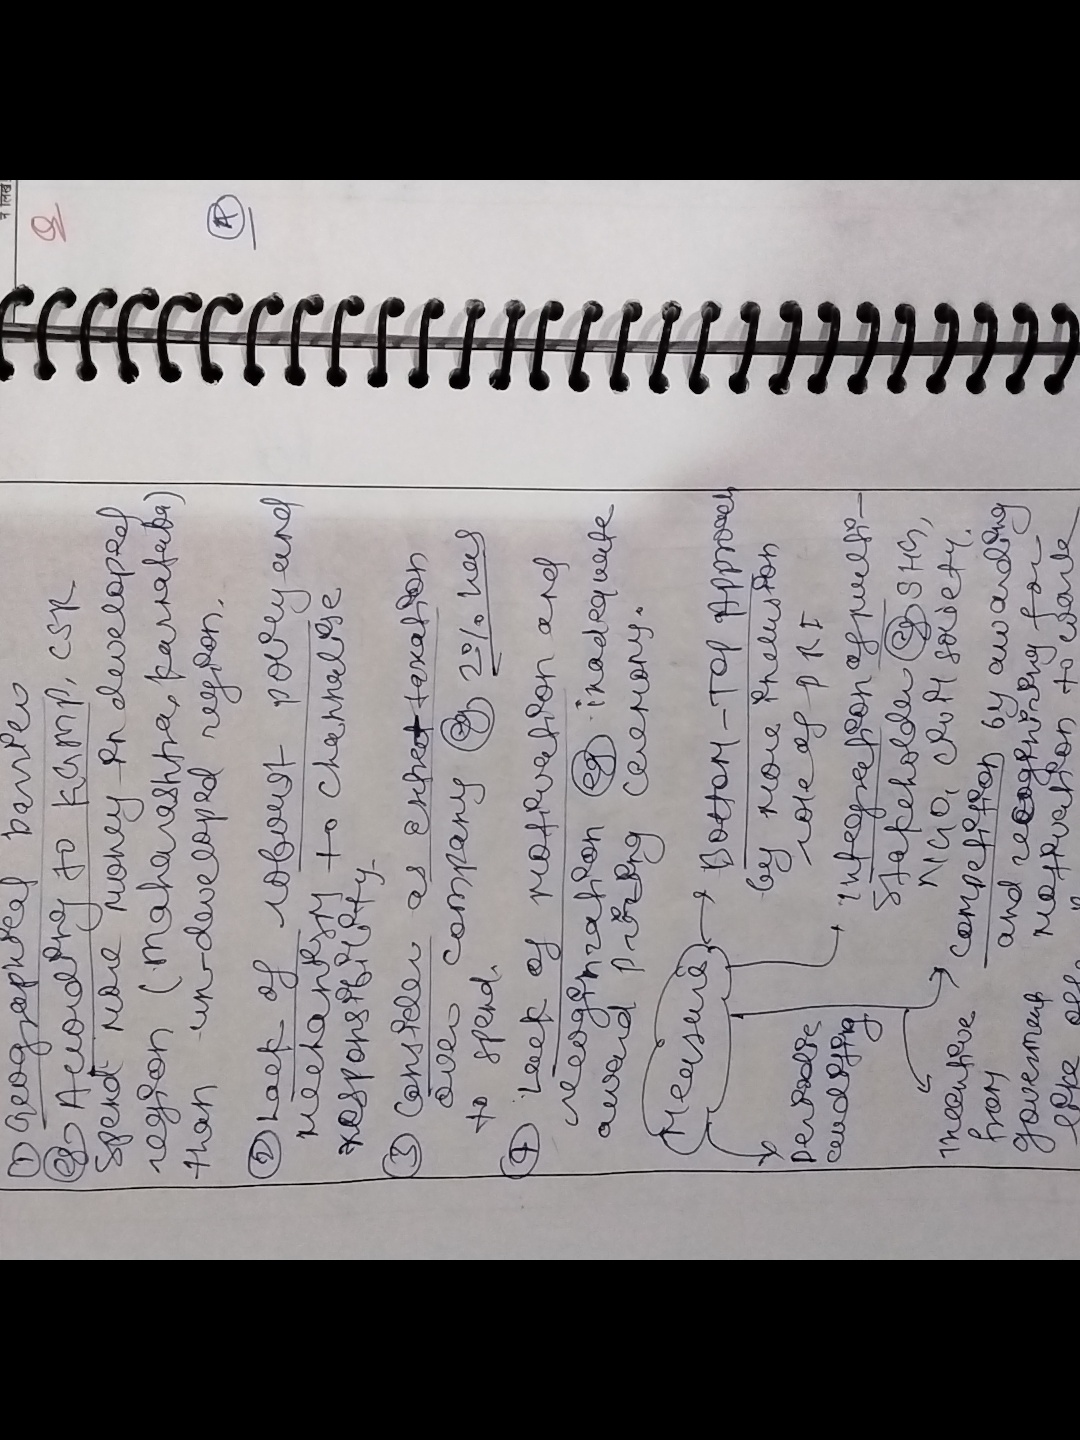 न लिखें
Q
A
① Geographical barrier
eg According to KGMP, CSR
spend more money in developed
region (Maharashtra, Karnataka)
than un-developed region.
② Lack of robust policy and
mechanism to channelise
responsibility.
③ Consider as taxation
over company eg 2% has
to spend.
④ Lack of motivation and
eg inadequate
award prizing ceremony.
Measure
Bottom-Top Approach
by more inclusion
role of PRI
integration of multi-
Stakeholder eg SHG,
NGO, civil society.
competition by awarding
and recognizing for
motivation to work
periodic
auditing
Incentive
from
government
like